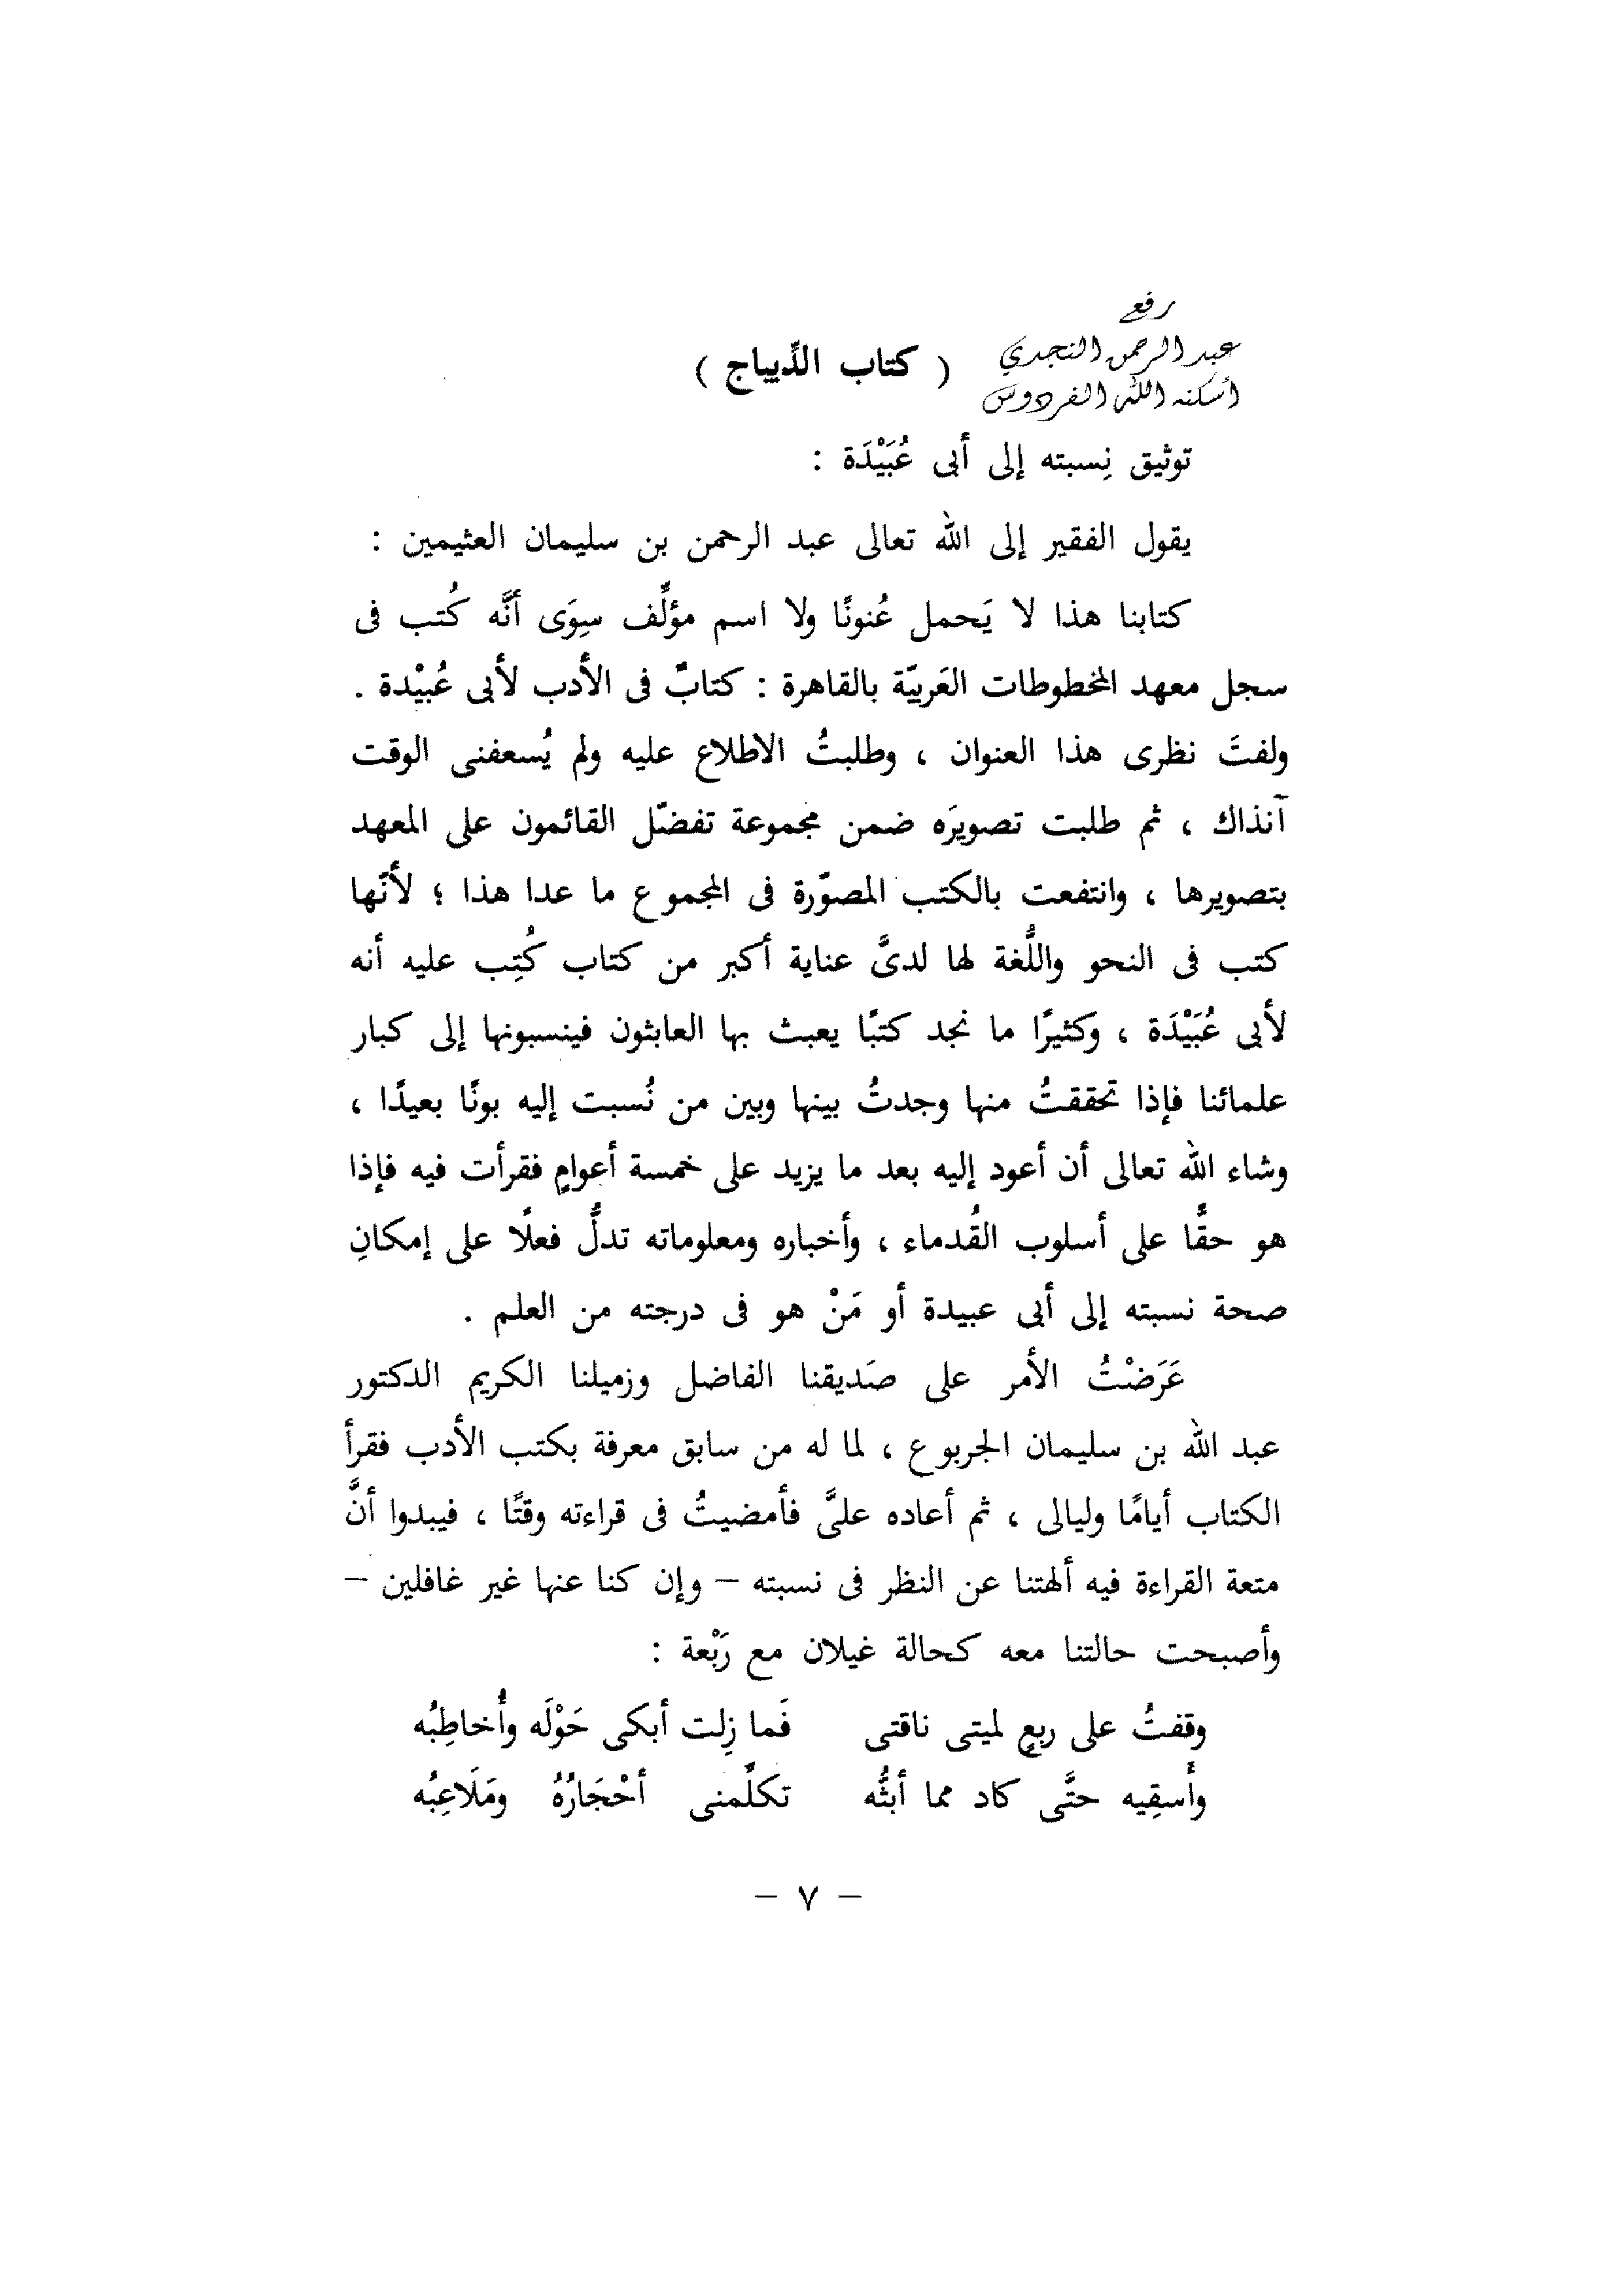 رفع
عبد الرحمن النجدي
أسكنه الله الفردوس
( كتاب الدِّيباج )
توثيق نِسبته إلى أبى عُبَيْدَة :
يقول الفقير إلى الله تعالى عبد الرحمن بن سليمان العثيمين :
كتابنا هذا لا يَحمل عُنونًا ولا اسم مؤلِّف سِوَى أنَّه كُتب فى
سجل معهد المخطوطات العَربيّة بالقاهرة : كتابٌ فى الأدب لأبى عُبيْدة .
ولفتَ نظرى هذا العنوان ، وطلبتُ الاطلاع عليه ولم يُسعفنى الوقت
آنذاك ، ثم طلبت تصويرَه ضمن مجموعة تفضّل القائمون على المعهد
بتصويرها ، وانتفعت بالكتب المصوّرة فى المجموع ما عدا هذا ؛ لأنّها
كتب فى النحو واللُّغة لها لدىَّ عناية أكبر من كتاب كُتِب عليه أنه
لأبى عُبَيْدَة ، وكثيرًا ما نجد كتبًا يعبث بها العابثون فينسبونها إلى كبار
علمائنا فإذا تحققتُ منها وجدتُ بينها وبين من نُسبت إليه بونًا بعيدًا ،
وشاء الله تعالى أن أعود إليه بعد ما يزيد على خمسة أعوامٍ فقرأت فيه فإذا
هو حقًّا على أسلوب القُدماء ، وأخباره ومعلوماته تدلُّ فعلًا على إمكانِ
صحة نسبته إلى أبى عبيدة أو مَنْ هو فى درجته من العلم .
عَرَضْتُ الأمر على صَديقنا الفاضل وزميلنا الكريم الدكتور
عبد الله بن سليمان الجربوع ، لما له من سابق معرفة بكتب الأدب فقرأ
الكتاب أيامًا وليالى ، ثم أعاده علىَّ فأمضيتُ فى قراءته وقتًا ، فيبدوا أنَّ
متعة القراءة فيه ألهتنا عن النظر فى نسبته – وإن كنا عنها غير غافلين –
وأصبحت حالتنا معه كحالة غيلان مع رَبْعة :
وقفتُ على ربعٍ لميتى ناقتى فَما زِلت أبكى حَوْلَه وأُخاطِبُه
وأَسقِيه حتَّى كاد مما أبثُّه تكلِّمنى أحْجَارُهُ ومَلَاعِبُه
– ٧ –